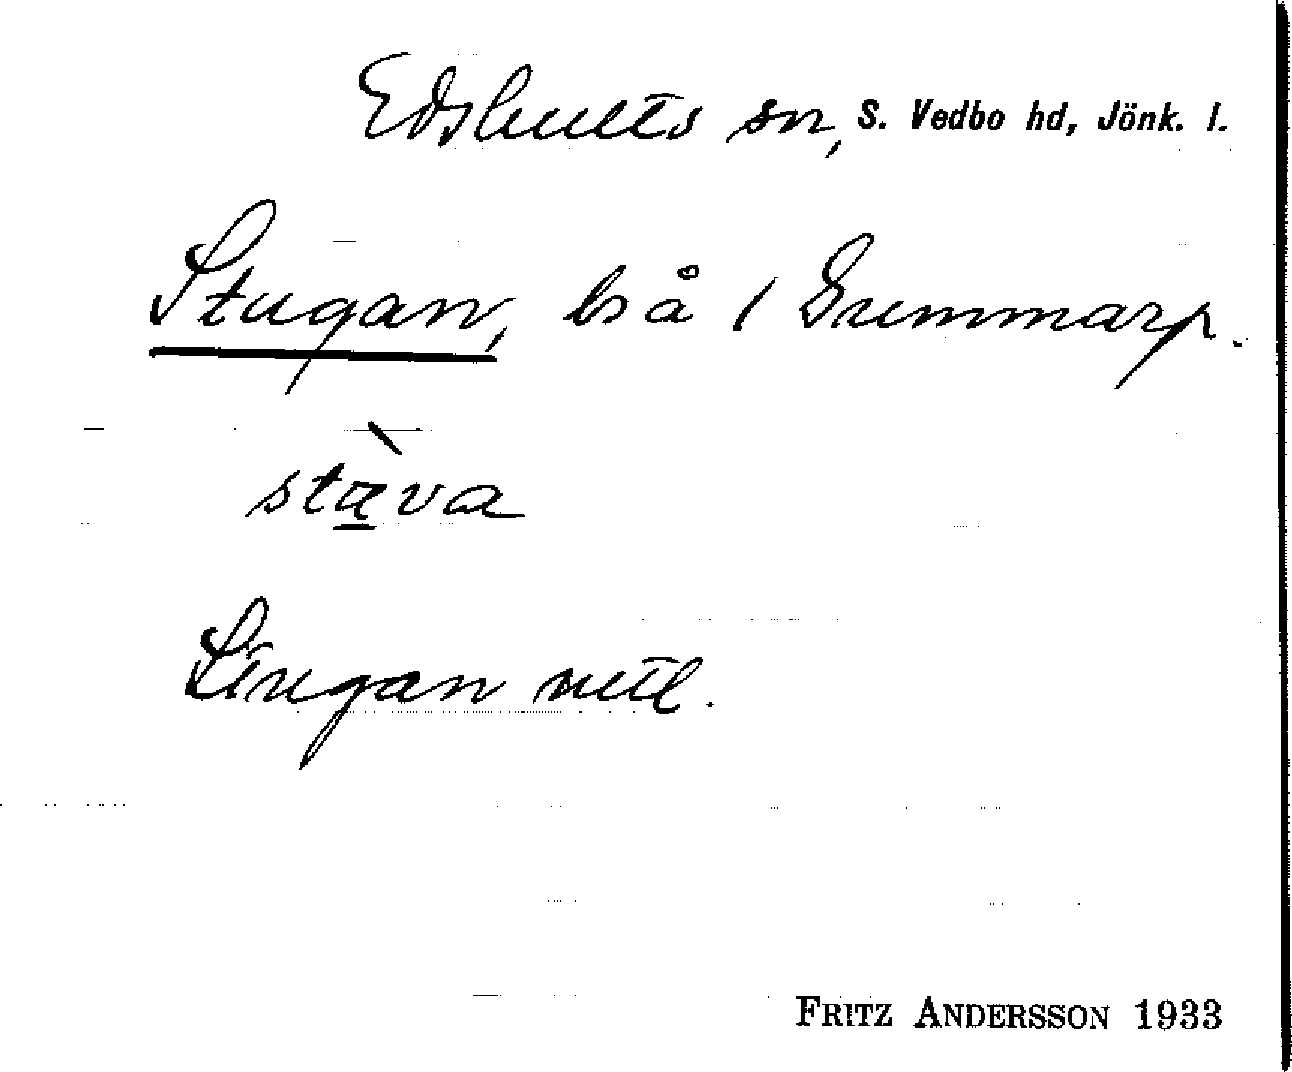 Edshults sn, S. Vedbo hd, Jönk. l.
Stugan, bs å / Gummarp.
stàva
Stugan utl.
FRITZ ANDERSSON 1933